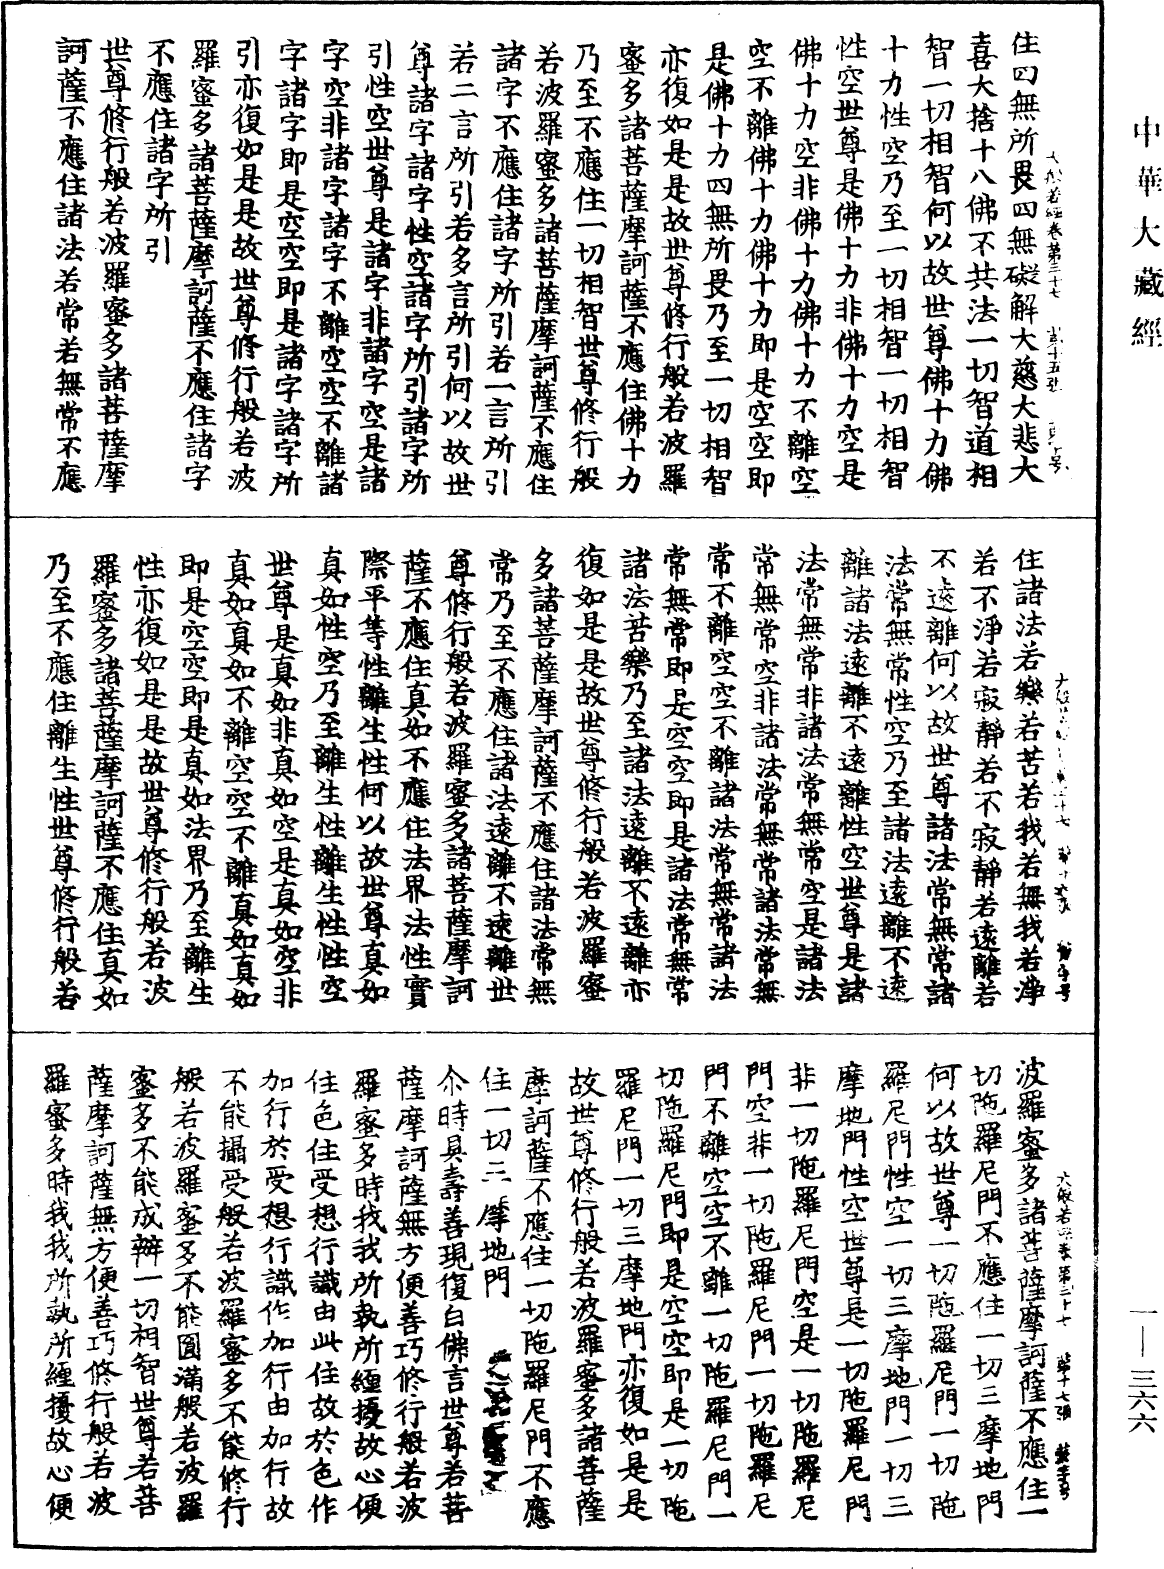 中華大藏經
住四無所畏四無礙解大慈大悲大
喜大捨十八佛不共法一切智道相
智一切相智何以故世尊佛十力佛
十力性空乃至一切相智一切相智
性空世尊是佛十力非佛十力空是
佛十力空非佛十力佛十力不離空
空不離佛十力佛十力即是空空即
是佛十力四無所畏乃至一切相智
亦復如是是故世尊修行般若波羅
蜜多諸菩薩摩訶薩不應住佛十力
乃至不應住一切相智世尊修行般
若波羅蜜多諸菩薩摩訶薩不應住
諸字不應住諸字所引若一言所引
若二言所引若多言所引何以故世
尊諸字諸字性空諸字所引諸字所
引性空世尊是諸字非諸字空是諸
字空非諸字諸字不離空空不離諸
字諸字即是空空即是諸字諸字所
引亦復如是是故世尊修行般若波
羅蜜多諸菩薩摩訶薩不應住諸字
不應住諸字所引
世尊修行般若波羅蜜多諸菩薩摩
訶薩不應住諸法若常若無常不應
住諸法若樂若苦若我若無我若淨
若不淨若寂靜若不寂靜若遠離若
不遠離何以故世尊諸法常無常諸
法常無常性空乃至諸法遠離不遠
離諸法遠離不遠離性空世尊是諸
法常無常非諸法常無常空是諸法
常無常空非諸法常無常諸法常無
常不離空空不離諸法常無常諸法
常無常即是空空即是諸法常無常
諸法苦樂乃至諸法遠離不遠離亦
復如是是故世尊修行般若波羅蜜
多諸菩薩摩訶薩不應住諸法常無
常乃至不應住諸法遠離不遠離世
尊修行般若波羅蜜多諸菩薩摩訶
薩不應住真如不應住法界法性實
際平等性離生性何以故世尊真如
真如性空乃至離生性離生性性空
世尊是真如非真如空是真如空非
真如真如不離空空不離真如真如
即是空空即是真如法界乃至離生
性亦復如是是故世尊修行般若波
羅蜜多諸菩薩摩訶薩不應住真如
乃至不應住離生性世尊修行般若
波羅蜜多諸菩薩摩訶薩不應住一
切陁羅尼門不應住一切三摩地門
何以故世尊一切陁羅尼門一切陁
羅尼門性空一切三摩地門一切三
摩地門性空世尊是一切陁羅尼門
非一切陁羅尼門空是一切陁羅尼
門空非一切陁羅尼門一切陁羅尼
門不離空空不離一切陁羅尼門一
切陁羅尼門即是空空即是一切陁
羅尼門一切三摩地門亦復如是是
故世尊修行般若波羅蜜多諸菩薩
摩訶薩不應住一切陁羅尼門不應
住一切三摩地門
尒時具壽善現復白佛言世尊若菩
薩摩訶薩無方便善巧修行般若波
羅蜜多時我我所執所纏擾故心便
住色住受想行識由此住故於色作
加行於受想行識作加行由加行故
不能攝受般若波羅蜜多不能修行
般若波羅蜜多不能圓滿般若波羅
蜜多不能成辦一切相智世尊若菩
薩摩訶薩無方便善巧修行般若波
羅蜜多時我我所執所纏擾故心便
一—三六六